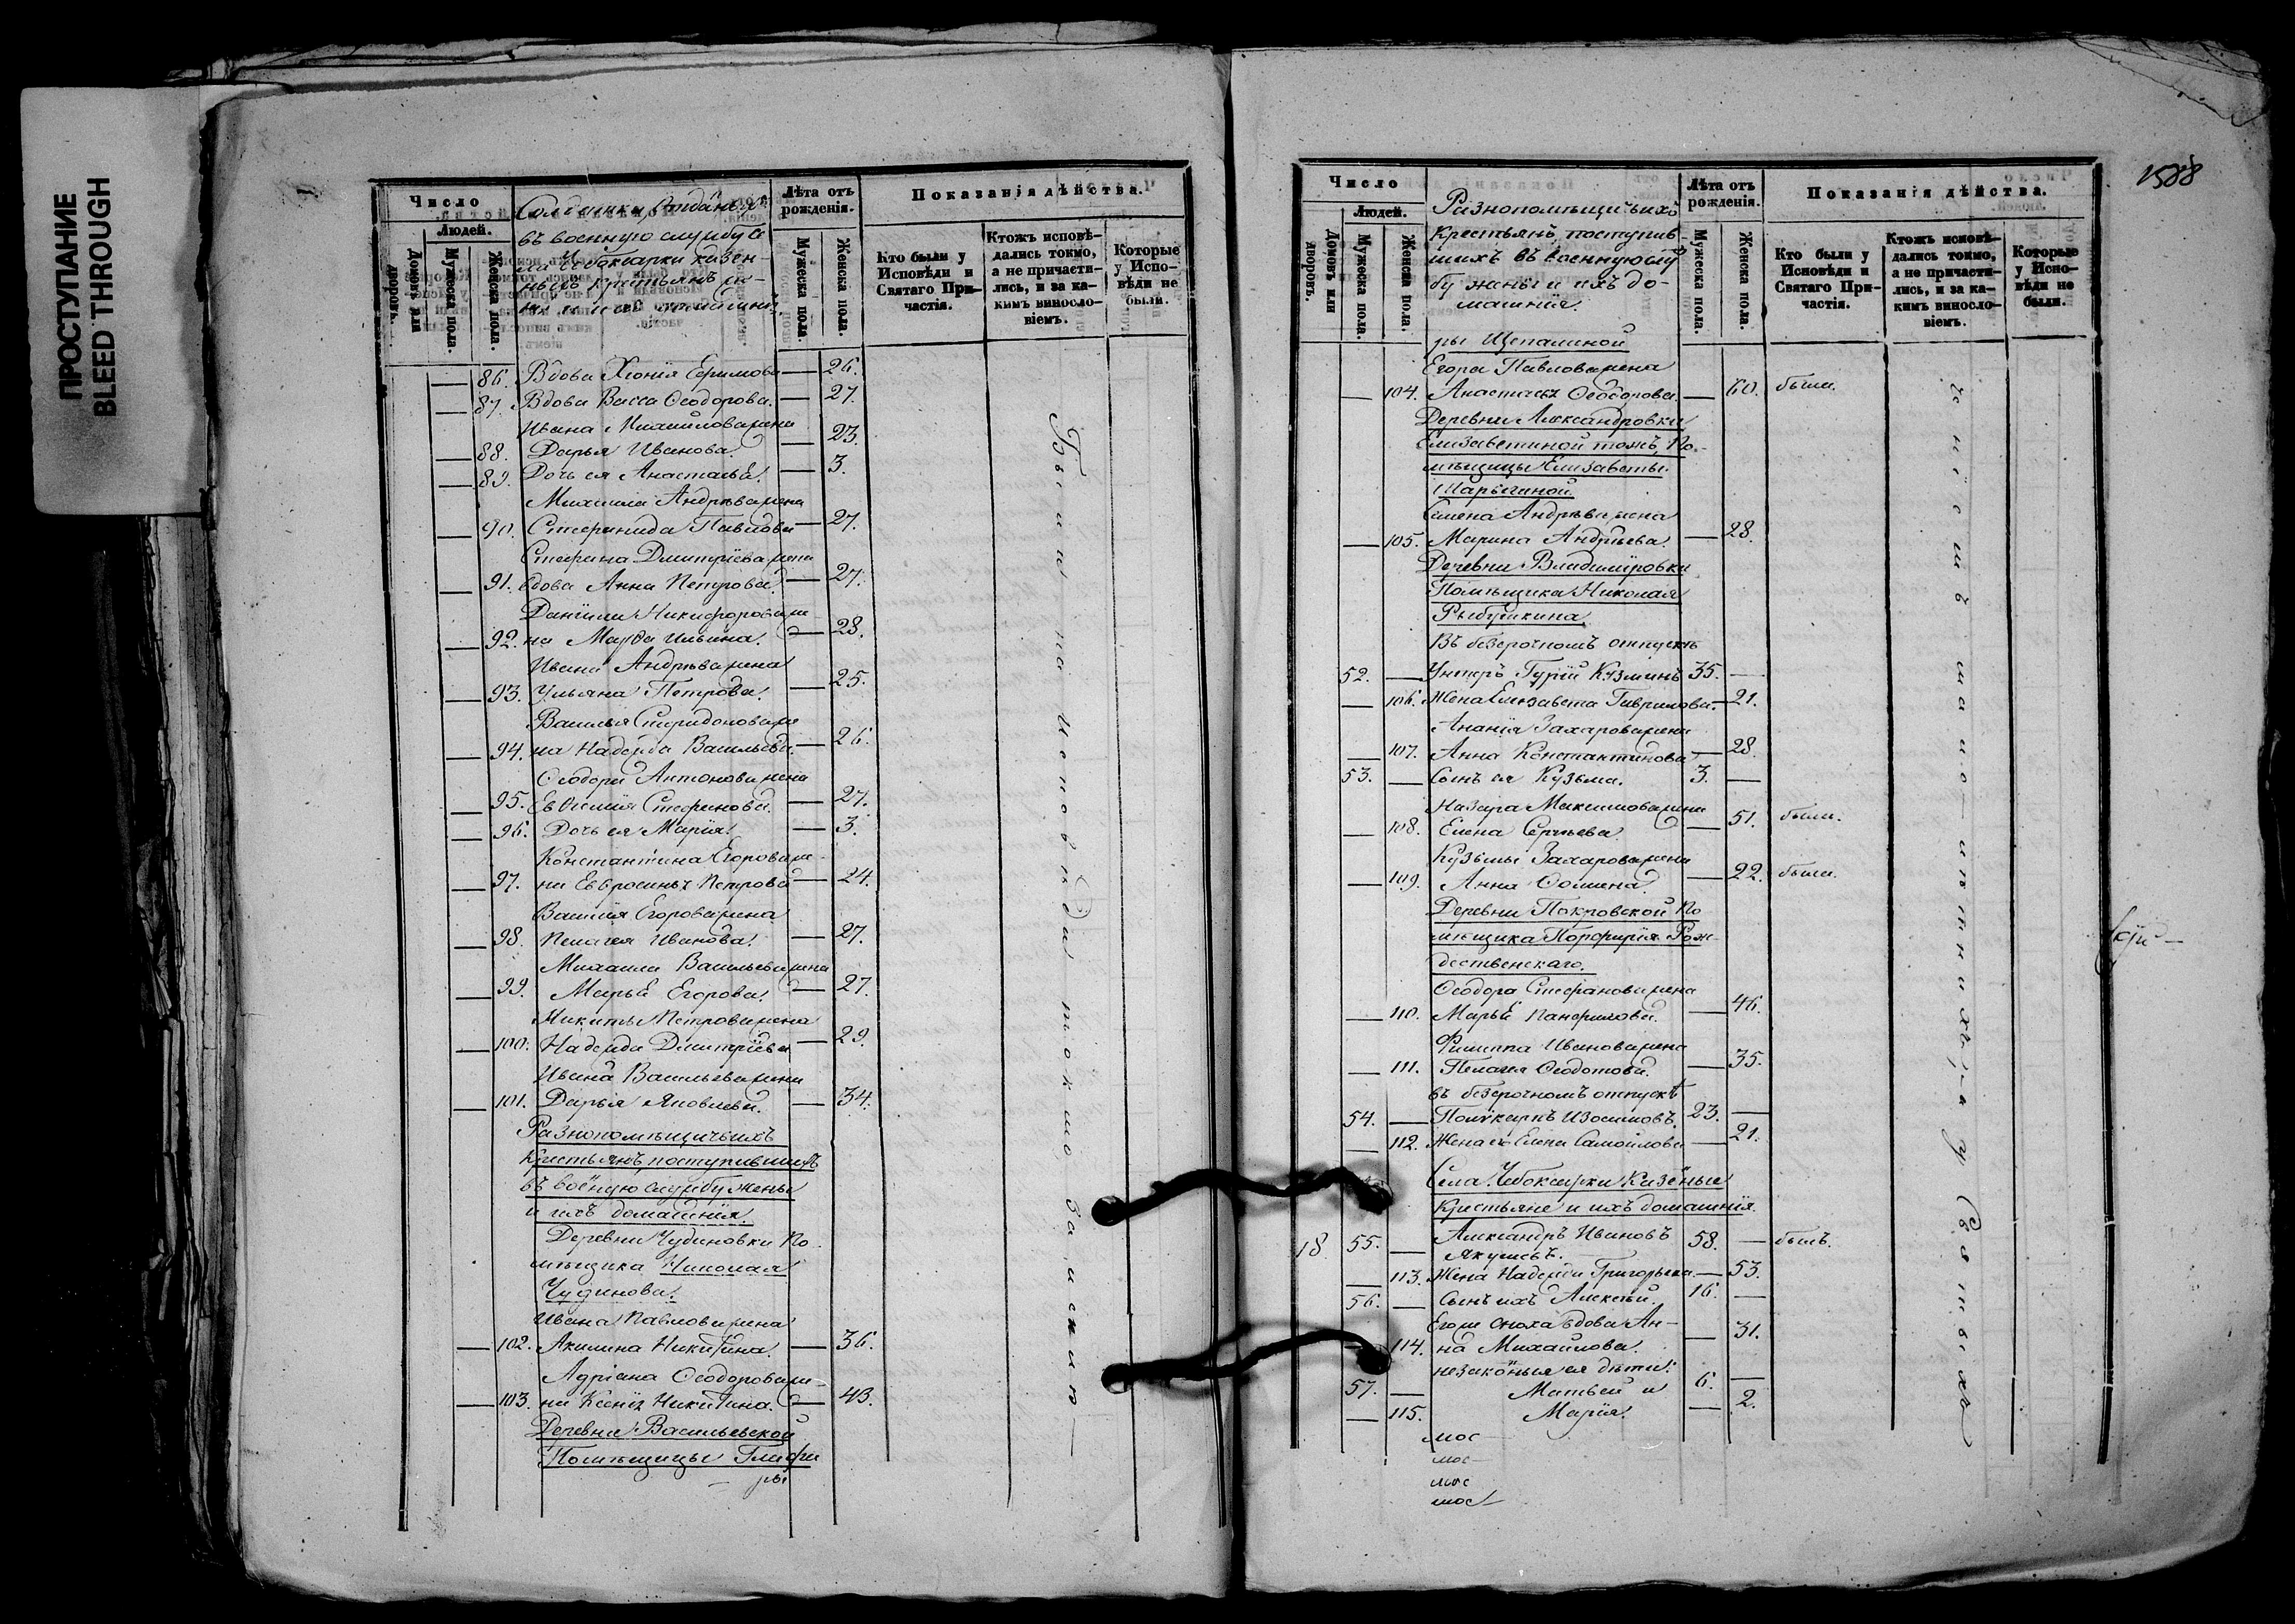 ПРОСТУПАНИЕ
BLEED THROUGH
Число
Людей.
Домовъ или дворовъ.
Мужеска пола.
Женска пола.
въ военную службу се
ла Чебоксарки казен-
Лѣта отъ рожденія.
Мужеска пола
Женска пола.
Показанія дѣйства.
Кто были у Исповѣди и Святаго Причастія.
Ктожъ исповѣдались токмо, а не причастились, и за какимъ винословіемъ.
Которые у Исповѣди не были.
86. Вдова Хіонія Ефимова — 26.
87. Вдова Васса Ѳеодорова. — 27.
Ивана Михайлова жена
88. Дарья Иванова. — 23.
89. Дочь ея Анастасья. — 3.
Михаила Андрѣева жена
90. Стефанида Павлова — 27.
Стефана Дмитріева жена
91. вдова Анна Петрова. — 27.
Даніила Никифорова же
92. на Марѳа Ильина. — 28.
Ивана Андрѣева жена
93. Ульяна Петрова. — 25.
Василья Спиридонова же
94. на Надежда Васильева. — 26.
Ѳеодора Антонова жена
95. Евѳимія Стефанова. — 27.
96. Дочь ея Марія. — 3.
Константина Егорова же
97. на Евфросинья Петрова — 24.
Василія Егорова жена
98. Пелагея Иванова. — 27.
Михаила Васильева жена
99. Марья Егорова. — 27.
Никиты Петрова жена
100. Надежда Дмитріева — 29.
Ивана Васильева жена
101. Дарья Яковлева. — 34.
Разнопомѣщичьихъ
крестьянъ, поступившихъ
въ военую службу жены
и ихъ домашнія.
Деревни Чудиновки По
мѣщика Николая
Чудинова.
Ивана Павлова жена
102. Акилина Никитина. — 36.
Адріана Ѳеодорова же-
103. на Ксенія Никитина. — 43.
Деревни Васильевской
Помѣщицы Глафи
— ры
Были на исповѣди токмо за испи—
1588
Число
Людей.
Домовъ или дворовъ.
Мужеска пола.
Женска пола.
Разнопомѣщичьихъ
крестьянъ, поступив
шихъ въ военную слу
бу жены и ихъ до-
машнія.
Лѣта отъ рожденія.
Мужеска пола.
Женска пола.
Показанія дѣйства.
Кто были у Исповѣди и Святаго Причастія.
Ктожъ исповѣдались токмо, а не причастились, и за какимъ винословіемъ.
Которые у Исповѣди не были.
ры Щепалиной
Егора Павлова жена
104. Анастасья Ѳеодорова. — 60. была.
Деревни Александровки
Елизаветиной тожъ, По-
мѣщицы Елизаветы
Семена Андрѣева жена
105. Марина Андрѣева. — 28.
Деревни Владиміровки
Помѣщика Николая
Рыбушкина
Въ безсрочномъ отпускѣ
52. — Унтеръ Гурій Кузминъ 35. —
106. Жена Елизавета Гаврилова. — 21.
Ананія Захарова жена
107. Анна Константинова — 28.
53. — Сынъ ея Кузьма. 3. —
Назара Максимова жена
108. Елена Сергѣева — 51. была.
Кузьмы Захарова жена
109. Анна Ѳомина. — 22. была.
Деревни Покровской По
мѣщика Порфирія Рож-
дественскаго.
Ѳеодора Стефанова жена
110. Марья Панфилова. — 46.
Филиппа Иванова жена
111. Пелагея Ѳеодотова. — 35.
въ безсрочномъ отпускѣ
54. — Поликарпъ Изосимовъ. 23. —
112. Жена его Елена Самойлова — 21.
Села Чебоксарки Казёные
крестьяне и ихъ домашнія.
18 55. — Александръ Ивановъ 58. — былъ.
Якушевъ.
113. Жена Надежда Григорьева — 53.
56. — Сынъ ихъ Алексѣй. 16. —
Егош сноха вдова Ан-
114. на Михайлова. — 31.
незаконыя ея дѣти:
57. — Матвей и 6. —
115. Марія. — 2.